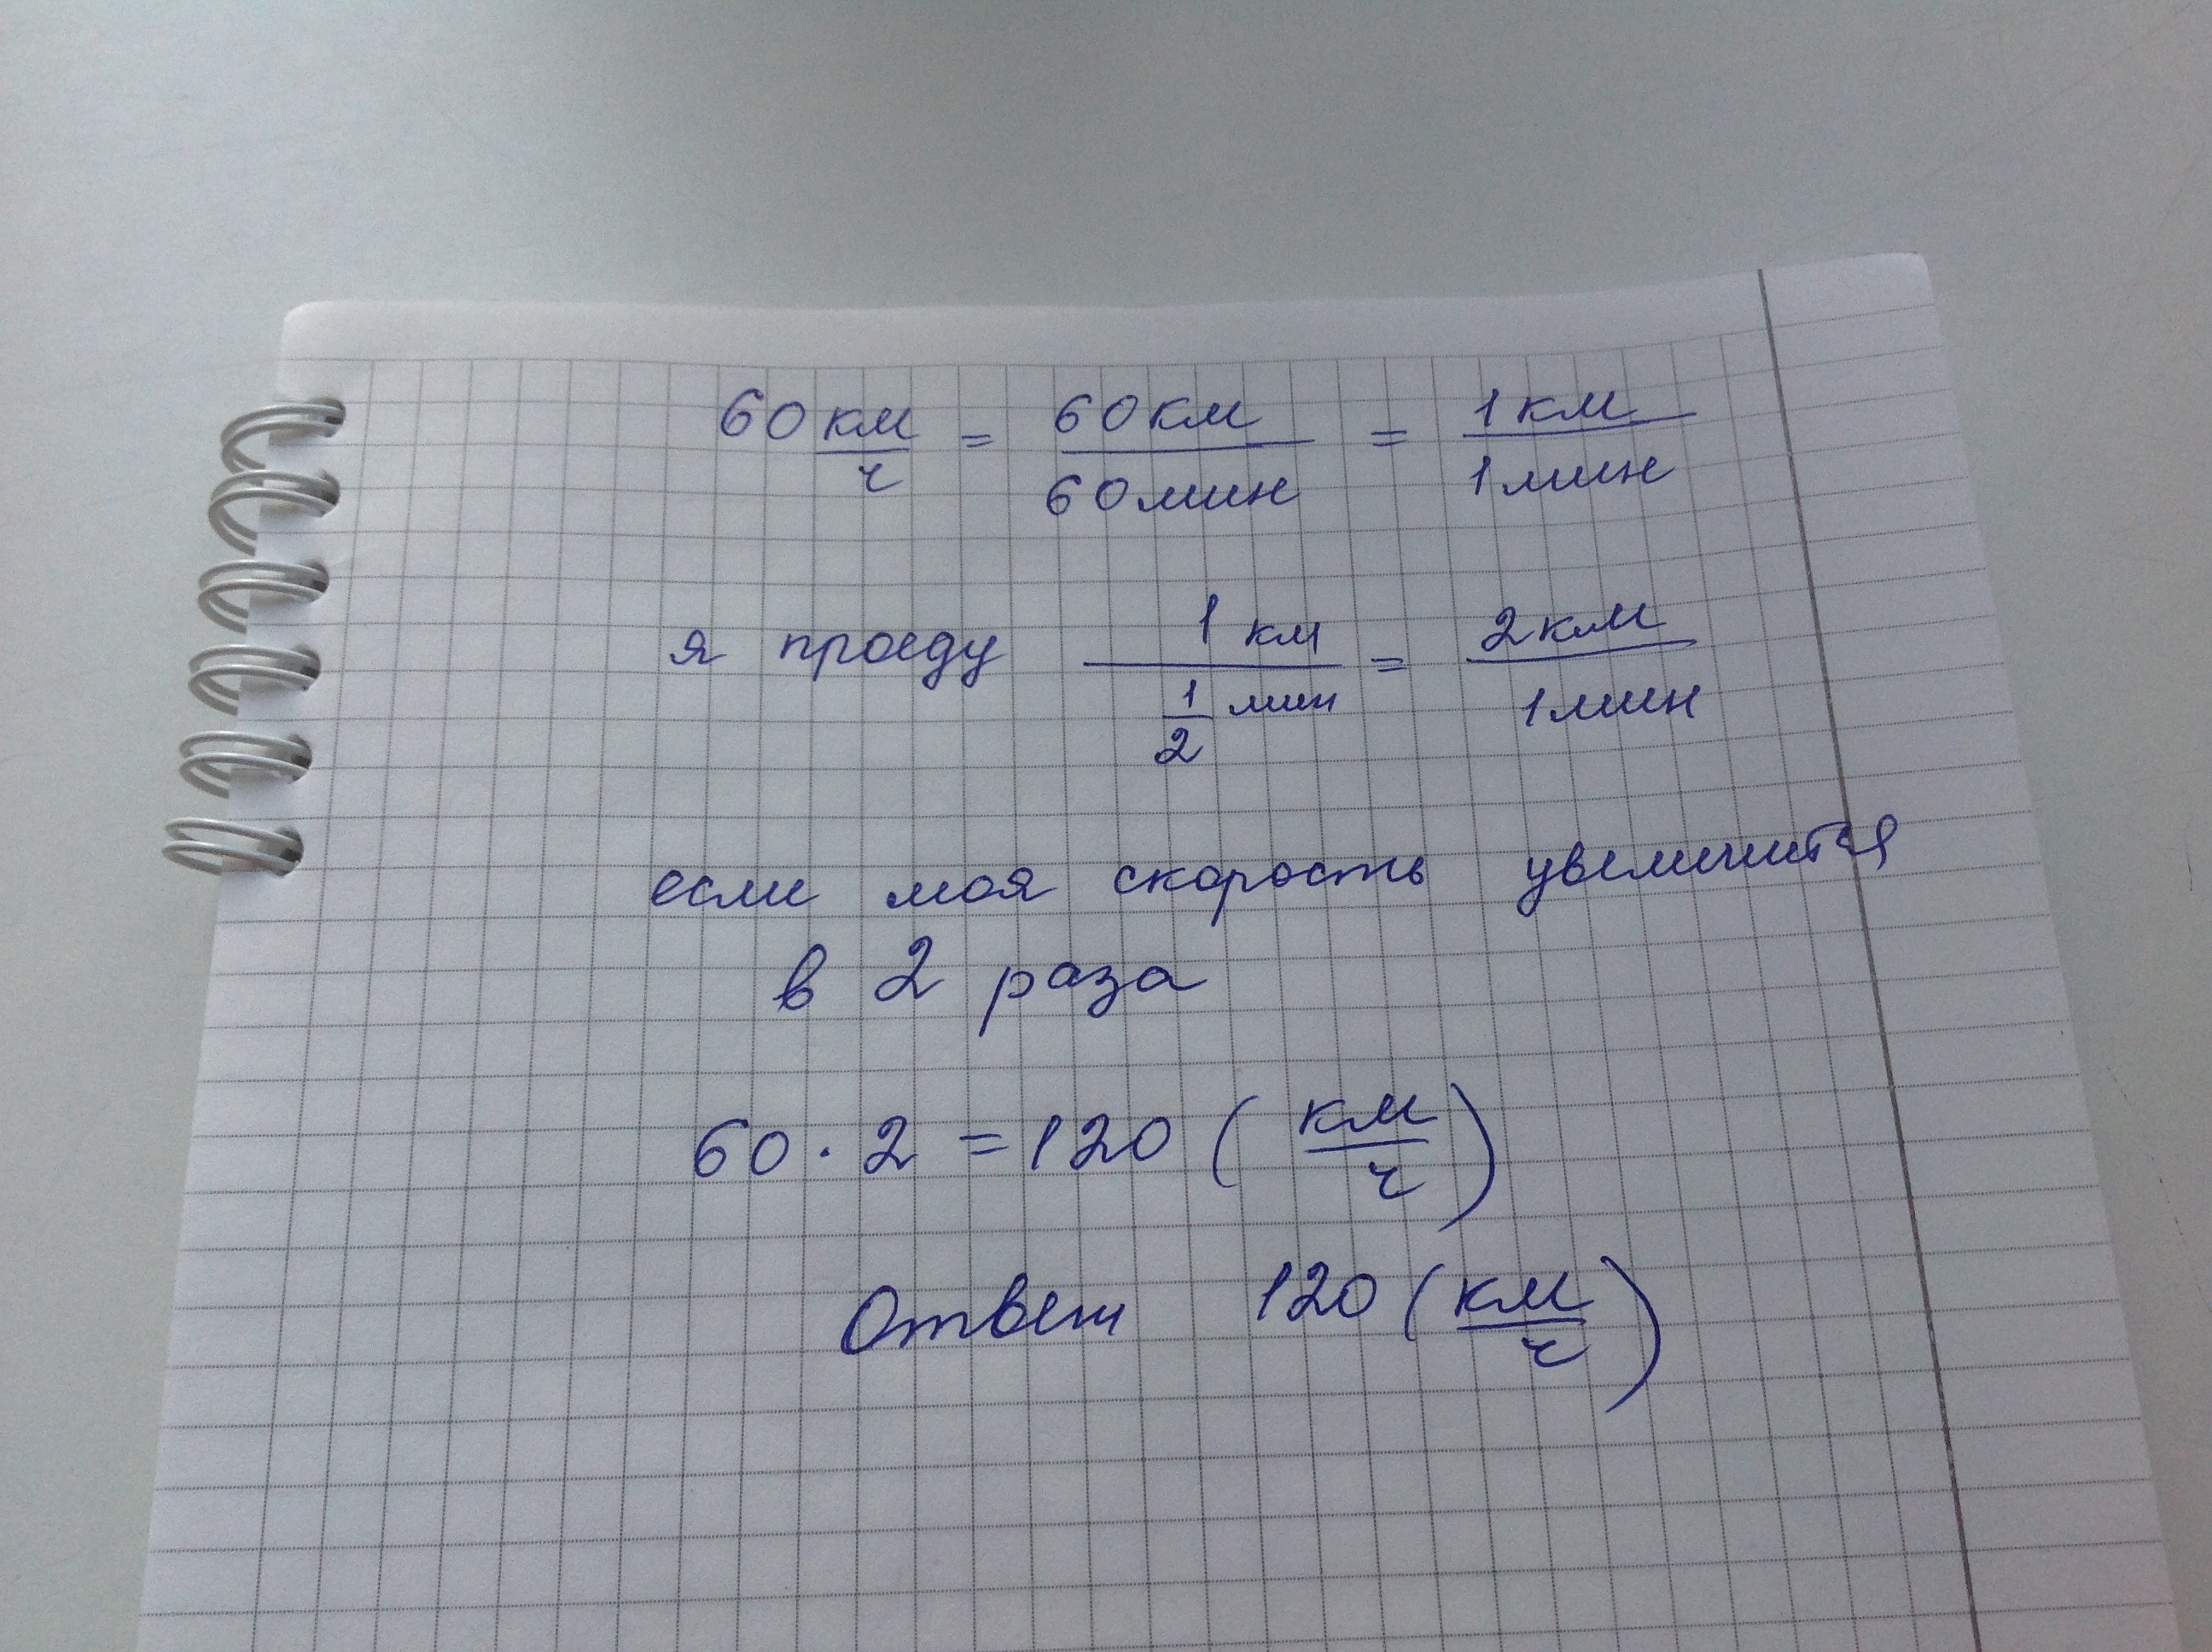 60 км/ч = 60 км/60 мин = 1 км/1 мин
я проеду 1 км/(1/2 мин) = 2 км/1 мин
если моя скорость увеличится
в 2 раза
60 · 2 = 120 (км/ч)
Ответ 120 (км/ч)